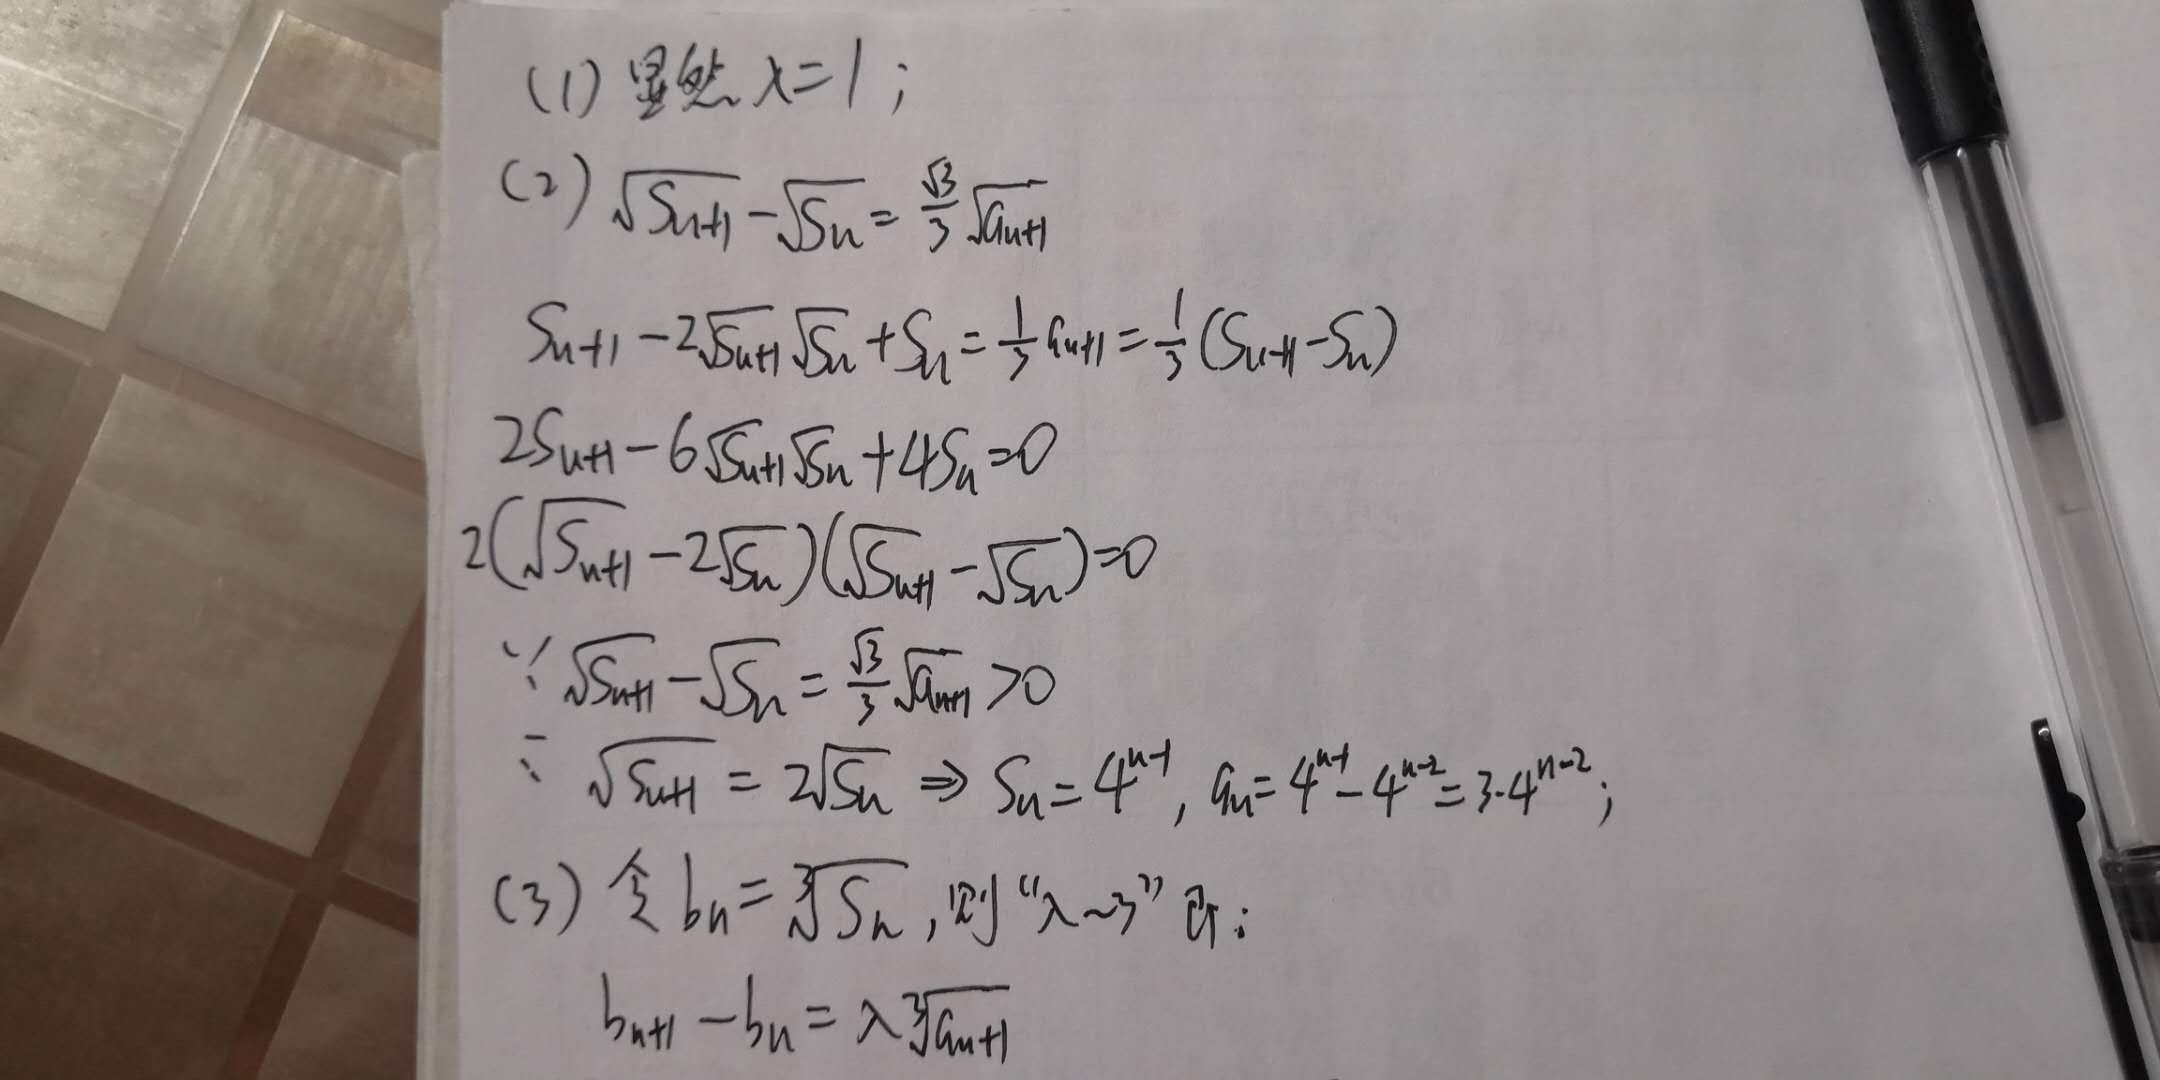 (1) 显然 λ=1;
(2) √S_{n+1} - √S_n = √3/3 √a_{n+1}
S_{n+1} - 2√S_{n+1} √S_n + S_n = 1/3 a_{n+1} = 1/3 (S_{n+1} - S_n)
2S_{n+1} - 6√S_{n+1} √S_n + 4S_n = 0
2(√S_{n+1} - 2√S_n)(√S_{n+1} - √S_n) = 0
∵ √S_{n+1} - √S_n = √3/3 √a_{n+1} > 0
∴ √S_{n+1} = 2√S_n ⇒ S_n = 4^{n-1}, a_n = 4^{n-1} - 4^{n-2} = 3·4^{n-2};
(3) 令 b_n = ³√S_n, 则 "λ~3" 时:
b_{n+1} - b_n = λ ³√a_{n+1}